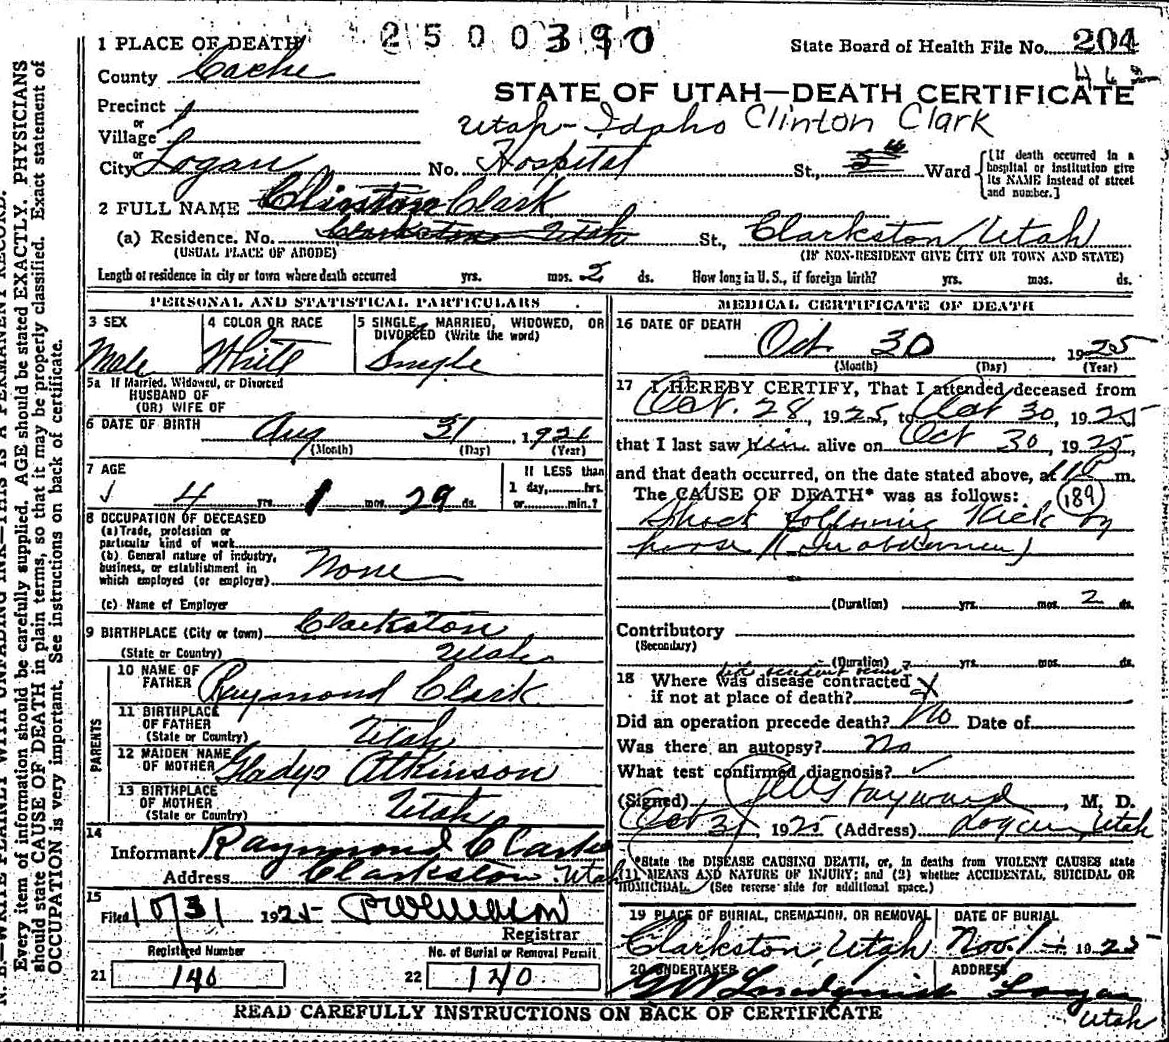 2500390
State Board of Health File No. 204
1 PLACE OF DEATH
County Cache
STATE OF UTAH—DEATH CERTIFICATE
Precinct 1
or
Village
or
Utah-Idaho Clinton Clark
City Logan No. Hospital St., Ward
[If death occurred in a hospital or institution give its NAME instead of street and number.]
2 FULL NAME Clinton Clark
(a) Residence. No. Clarkston Utah St., Clarkston Utah
(USUAL PLACE OF ABODE) (IF NON-RESIDENT GIVE CITY OR TOWN AND STATE)
Length of residence in city or town where death occurred yrs. mos. 2 ds. How long in U. S., if foreign birth? yrs. mos. ds.
PERSONAL AND STATISTICAL PARTICULARS
3 SEX 4 COLOR OR RACE 5 SINGLE, MARRIED, WIDOWED, OR DIVORCED (Write the word)
Male White Single
5a If Married, Widowed, or Divorced
HUSBAND OF
(OR) WIFE OF
6 DATE OF BIRTH Aug 31 1921
(Month) (Day) (Year)
7 AGE If LESS than
4 yrs. 1 mos. 29 ds. 1 day, hrs.
or min.?
8 OCCUPATION OF DECEASED
(a) Trade, profession or
particular kind of work
(b) General nature of industry,
business, or establishment in
which employed (or employer) None
(c) Name of Employer
9 BIRTHPLACE (City or town) Clarkston
(State or Country) Utah
PARENTS
10 NAME OF
FATHER Raymond Clark
11 BIRTHPLACE
OF FATHER
(State or Country) Utah
12 MAIDEN NAME
OF MOTHER Gladys Atkinson
13 BIRTHPLACE
OF MOTHER
(State or Country) Utah
14
Informant Raymond Clark
Address Clarkston Utah
15
Filed 10/31 1925
Registrar
Registered Number No. of Burial or Removal Permit
21 140 22 140
MEDICAL CERTIFICATE OF DEATH
16 DATE OF DEATH
Oct 30, 1925
(Month) (Day) (Year)
17 I HEREBY CERTIFY, That I attended deceased from
Oct. 28, 1925, to Oct 30, 1925
that I last saw him alive on Oct 30, 1925,
and that death occurred, on the date stated above, at m.
The CAUSE OF DEATH* was as follows: 189
Shock following Kick by
horse (in abdomen)
(Duration) yrs. mos. 2 ds.
Contributory
(Secondary)
(Duration) yrs. mos. ds.
18 Where was disease contracted
if not at place of death?
Did an operation precede death? No Date of
Was there an autopsy? No
What test confirmed diagnosis?
(Signed) Hayward, M. D.
Oct 31, 1925 (Address) Logan, Utah
*State the DISEASE CAUSING DEATH, or, in deaths from VIOLENT CAUSES state
(1) MEANS AND NATURE OF INJURY; and (2) whether ACCIDENTAL, SUICIDAL OR
HOMICIDAL. (See reverse side for additional space.)
19 PLACE OF BURIAL, CREMATION, OR REMOVAL DATE OF BURIAL
Clarkston, Utah Nov. 1 1925
20 UNDERTAKER ADDRESS
Logan
Utah
READ CAREFULLY INSTRUCTIONS ON BACK OF CERTIFICATE
N. B.—WRITE PLAINLY WITH UNFADING INK—THIS IS A PERMANENT RECORD.
Every item of information should be carefully supplied. AGE should be stated EXACTLY. PHYSICIANS
should state CAUSE OF DEATH in plain terms, so that it may be properly classified. Exact statement of
OCCUPATION is very important. See instructions on back of certificate.